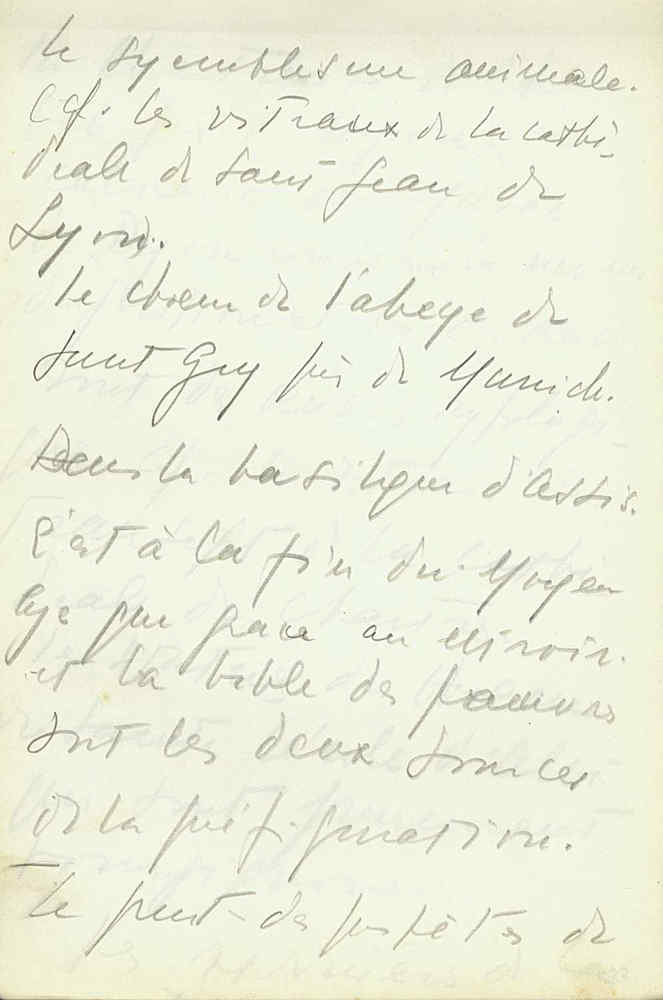 le symbolisme animale.
Cf. les vitraux de la cathé-
drale de Saint Jean de
Lyon.
Le choeur de l'abeye de
Saint Guy près de Munich.
Dans la basilique d'Assis.
C'est à la fin du Moyen
age que grace au miroir.
et la bible des pauvres
sont les deux sources
de la préfiguration.
Le des prophètes de